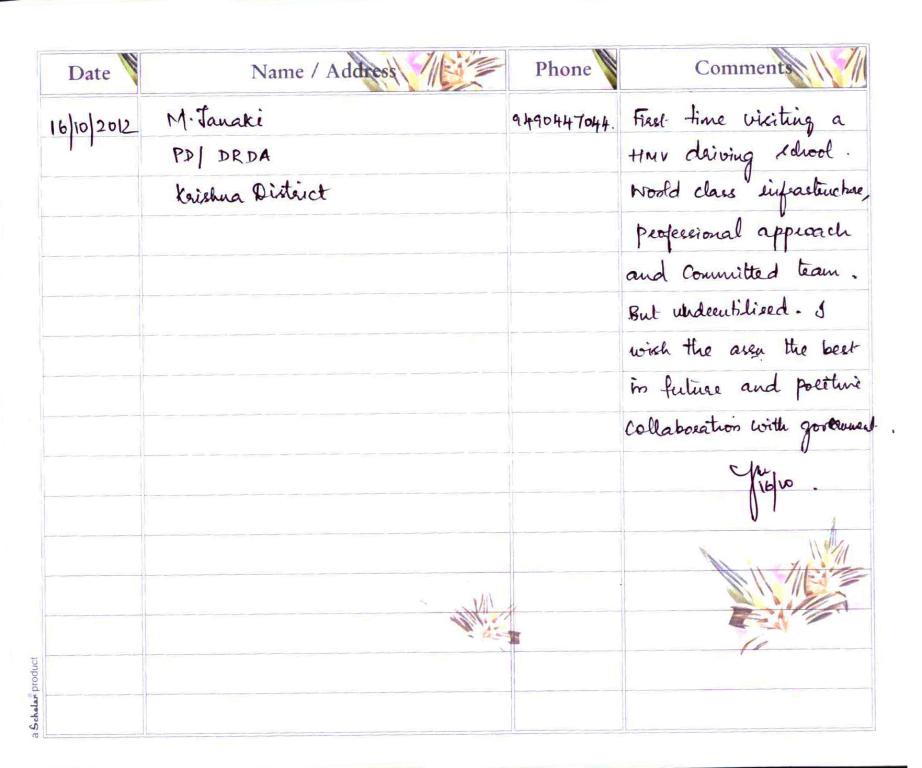 Date Name / Address Phone Comments
16/10/2012 M. Janaki 9490447044. First time visiting a
PD/ DRDA HMV driving school.
Krishna District World class infrastructure,
professional approach
and Committed team.
But underutilised. I
wish the area the best
in future and positive
Collaboration with government.
16/10.
a Scholar product